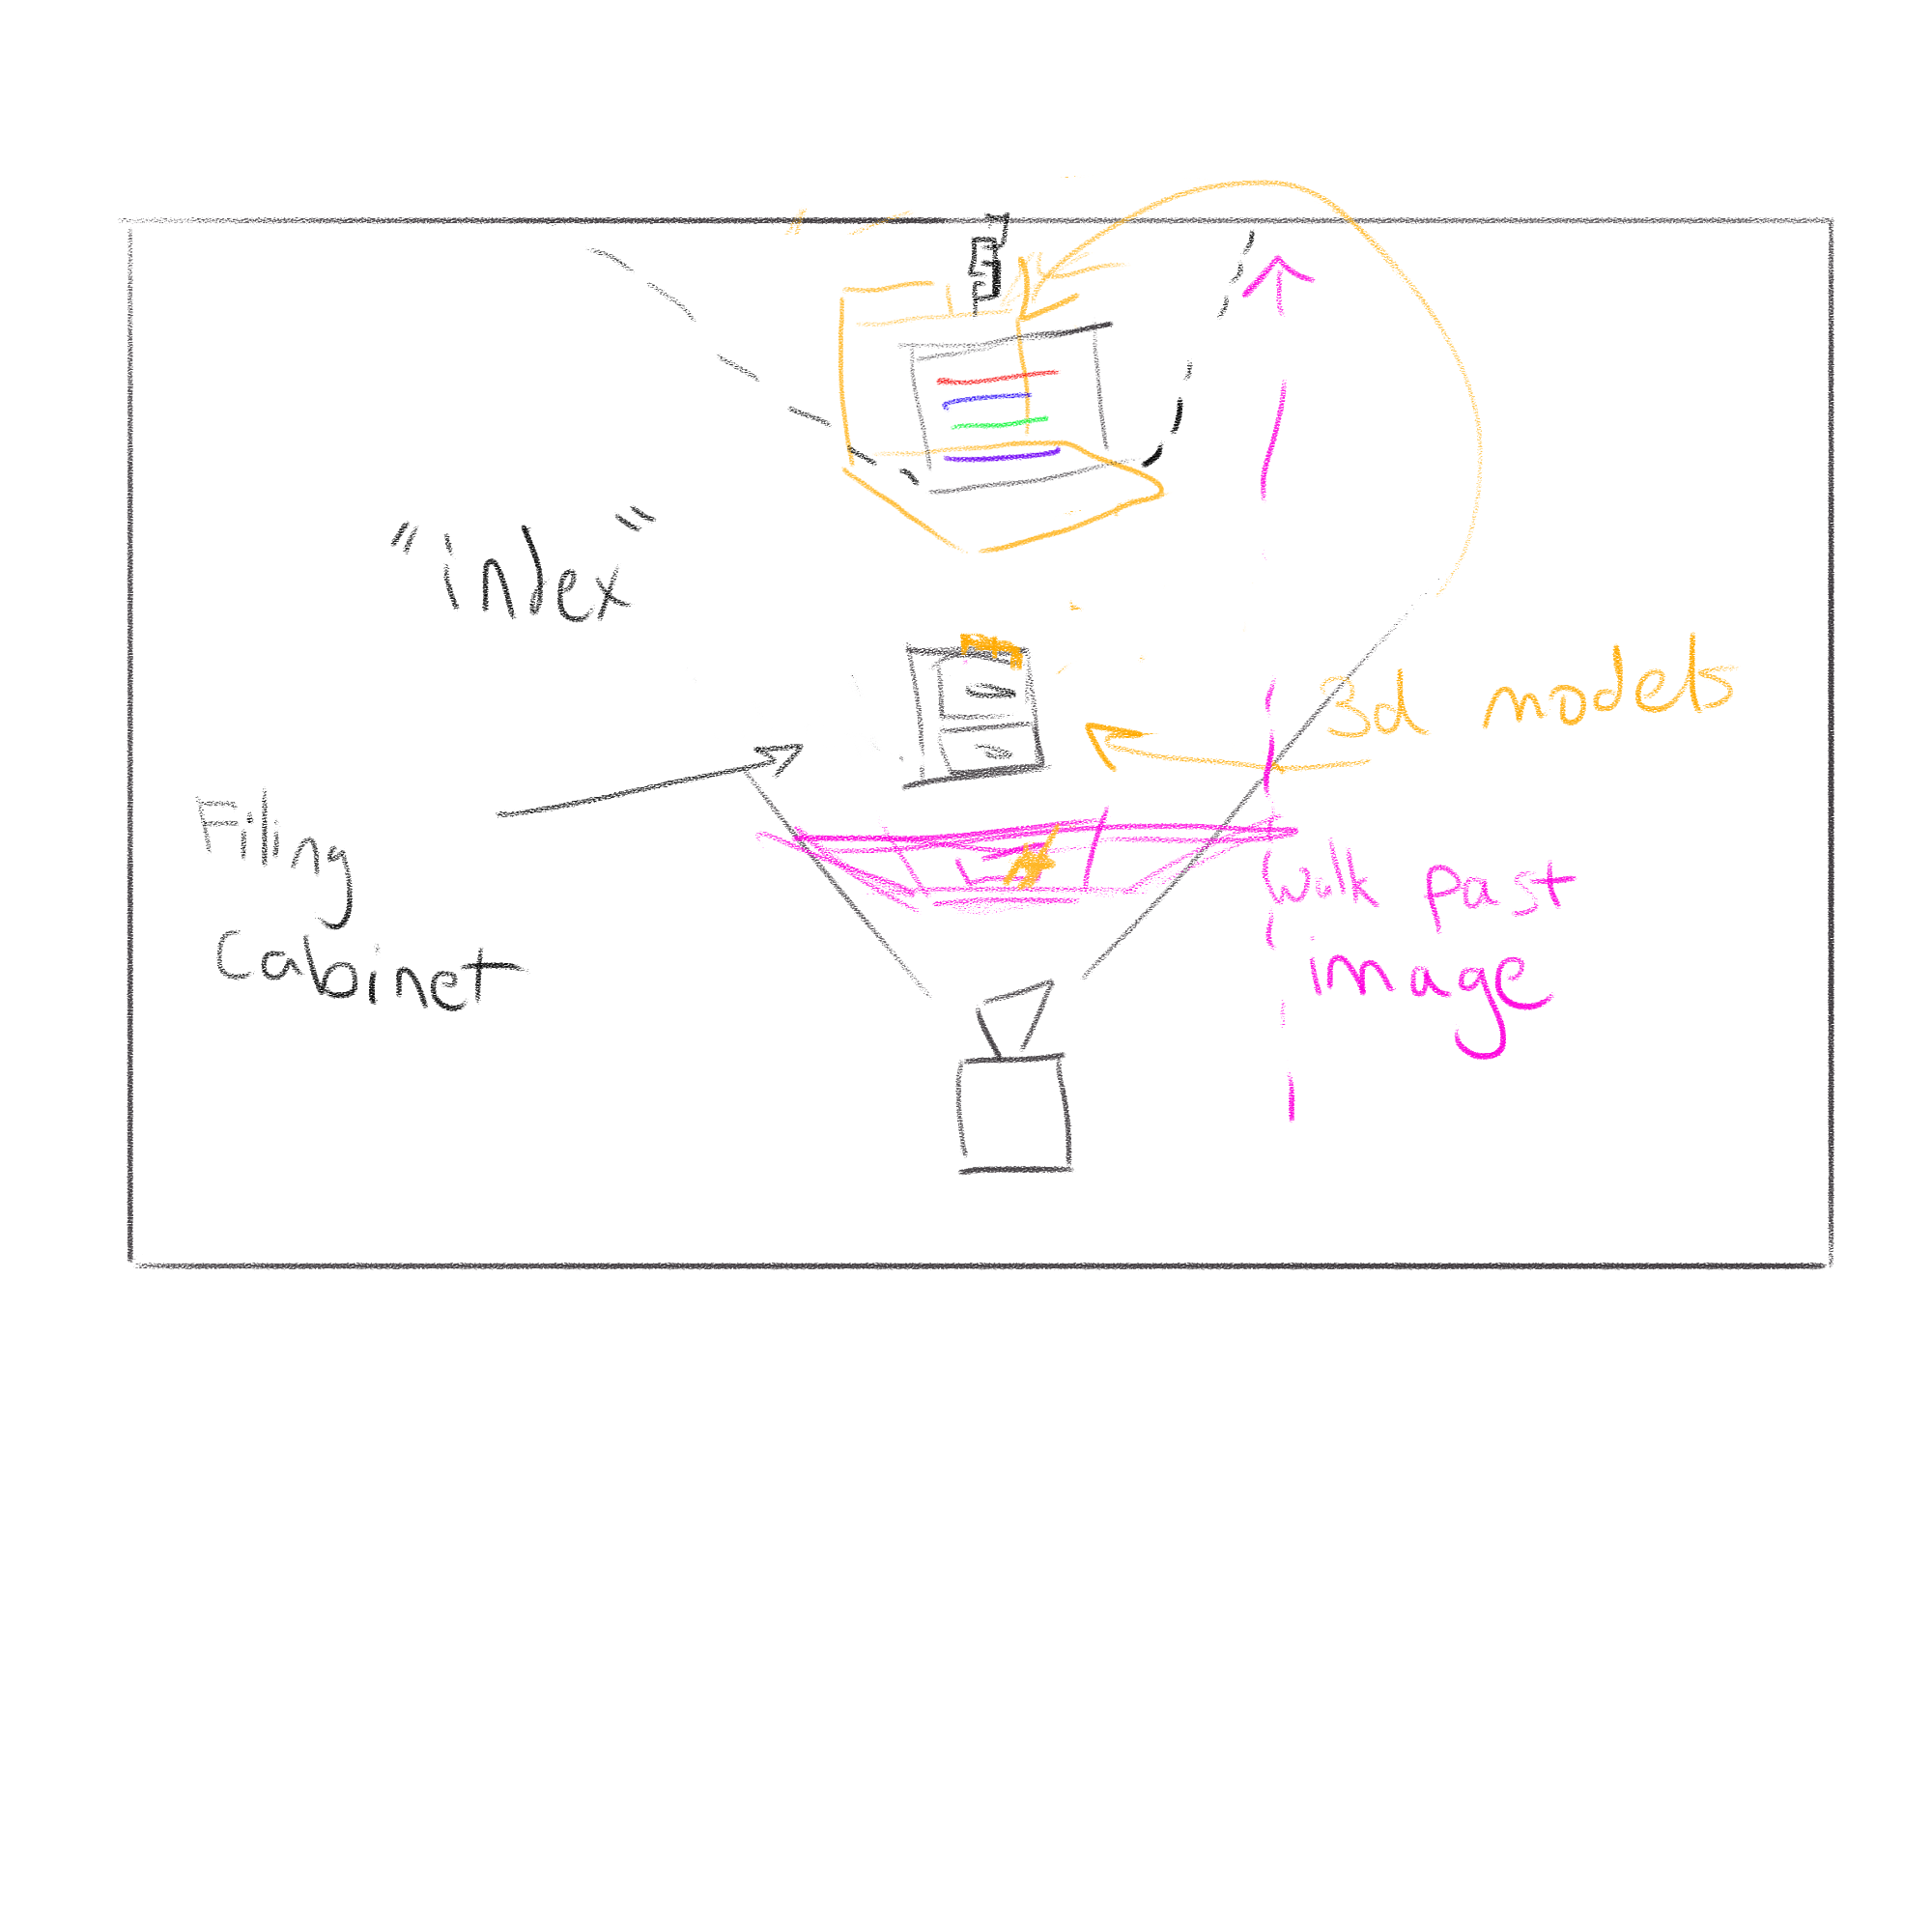 "index"
3d models
Filing
Cabinet
Walk past
image